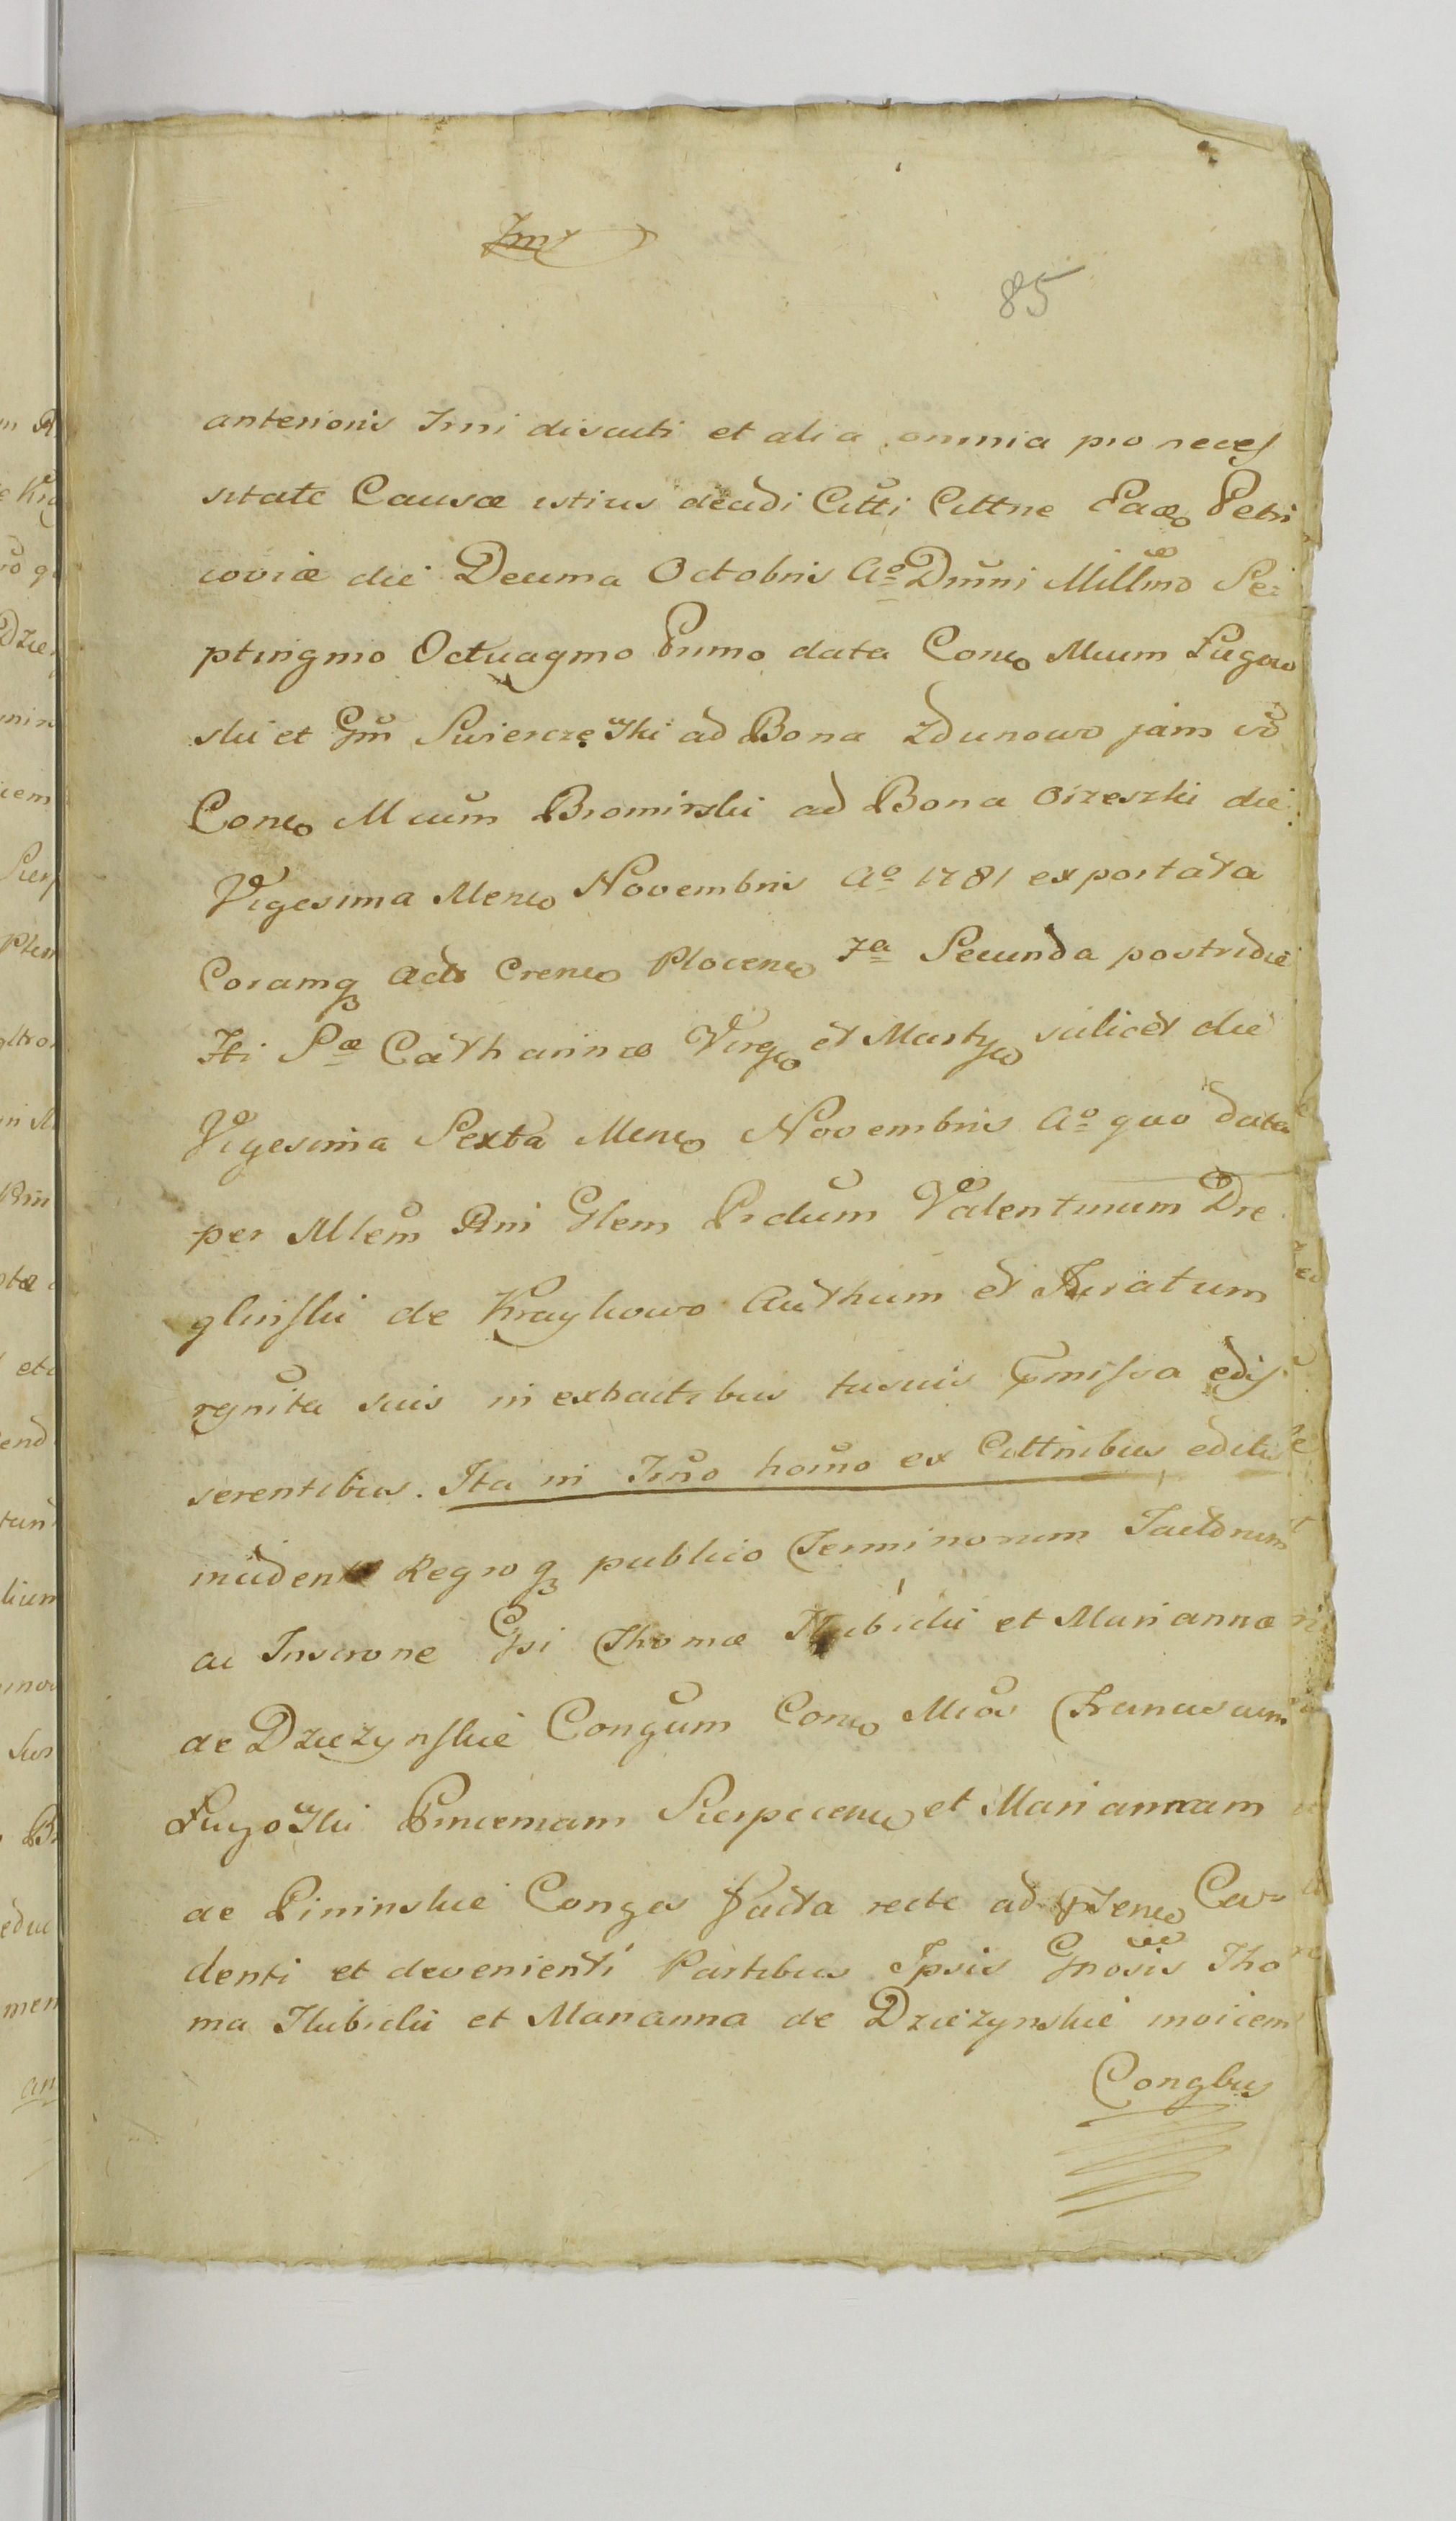 85
anterioris Irni discuti et alia omnia pro neces
sitate Causæ istius decidi Citti Cittne Eaco Petri
coviæ die Decima Octobris Ao Dnni Millmo Se-
ptingmo Octuagmo Primo data Conco Mcum Lugow
ski et Gm Swierczęski ad Bona Zdunowo jam vo
Conco Mcum Bromirski ad Bona Orzeszki die
Vigesima Menco Novembris Ao 1781 exportata
Coramq Actis Crenco Plocenco 7a Secunda postridie
Fti Sæ Catharinæ Virgco et Martyco scilicet die
Vigesima Sexta Menco Novembris Ao quo data
per Mlem Rni Glem Prdum Valentinum Dre
glinski de Kraykowo Authum et Juratum
rgnita suis in exhactibus tusuis pmissa edis
serentibus. Ita in Irno horno ex Cittnibus editis
incidente Regroq publico Terminorum Tactorum
ac Inscrone Gsi Thomæ Hubicki et Mariannæ
de Dzieżynskie Congum Conco Mcos Franciscum
Lugoski Pincernam Sierpcenco et Mariannam
de Pininskie Conges facta recte ad psenco Ca-
denti et devenienti Partibus Ipsis Gnosis Tho
ma Hubicki et Marianna de Dzieżynskie invicem
Congbus